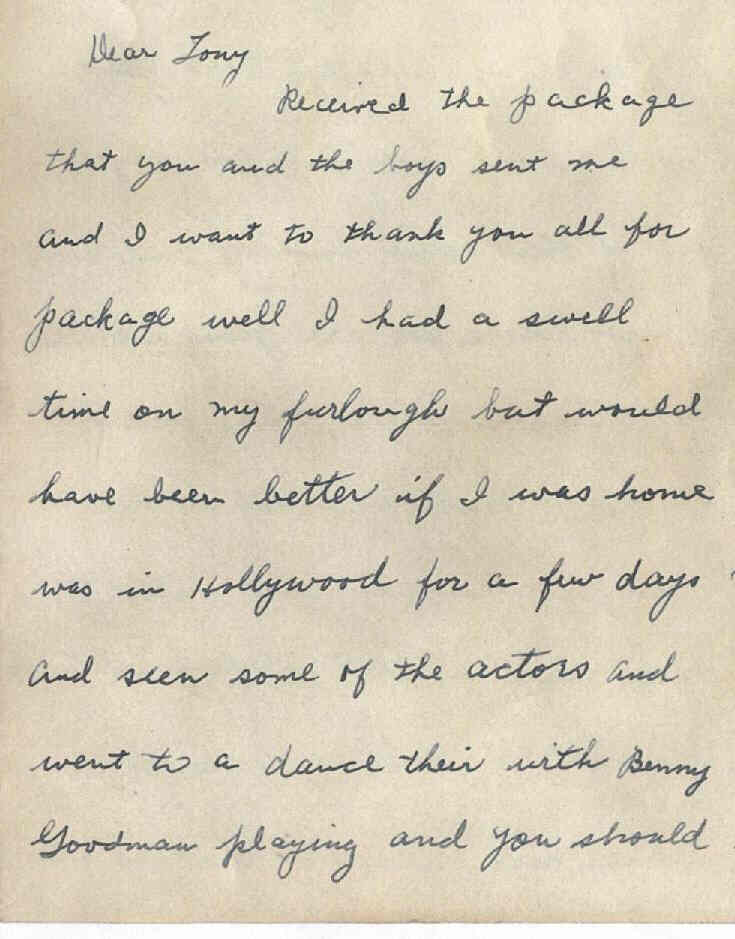 Dear Tony
Received the package
that you and the boys sent me
and I want to thank you all for
package well I had a swell
time on my furlough but would
have been better if I was home
was in Hollywood for a few days
and seen some of the actors and
went to a dance their with Benny
Goodman playing and you should